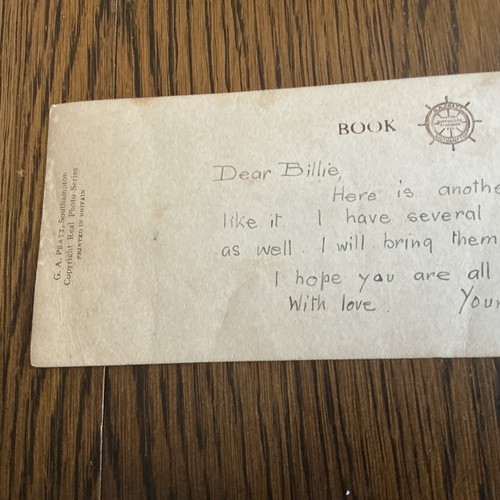 BOOK
Dear Billie,
Here is anothe
like it I have several
as well. I will bring them
I hope you are all
With love. Your
G. A. PRATT, Southampton
Copyright Real Photo Series
PRINTED IN BRITAIN